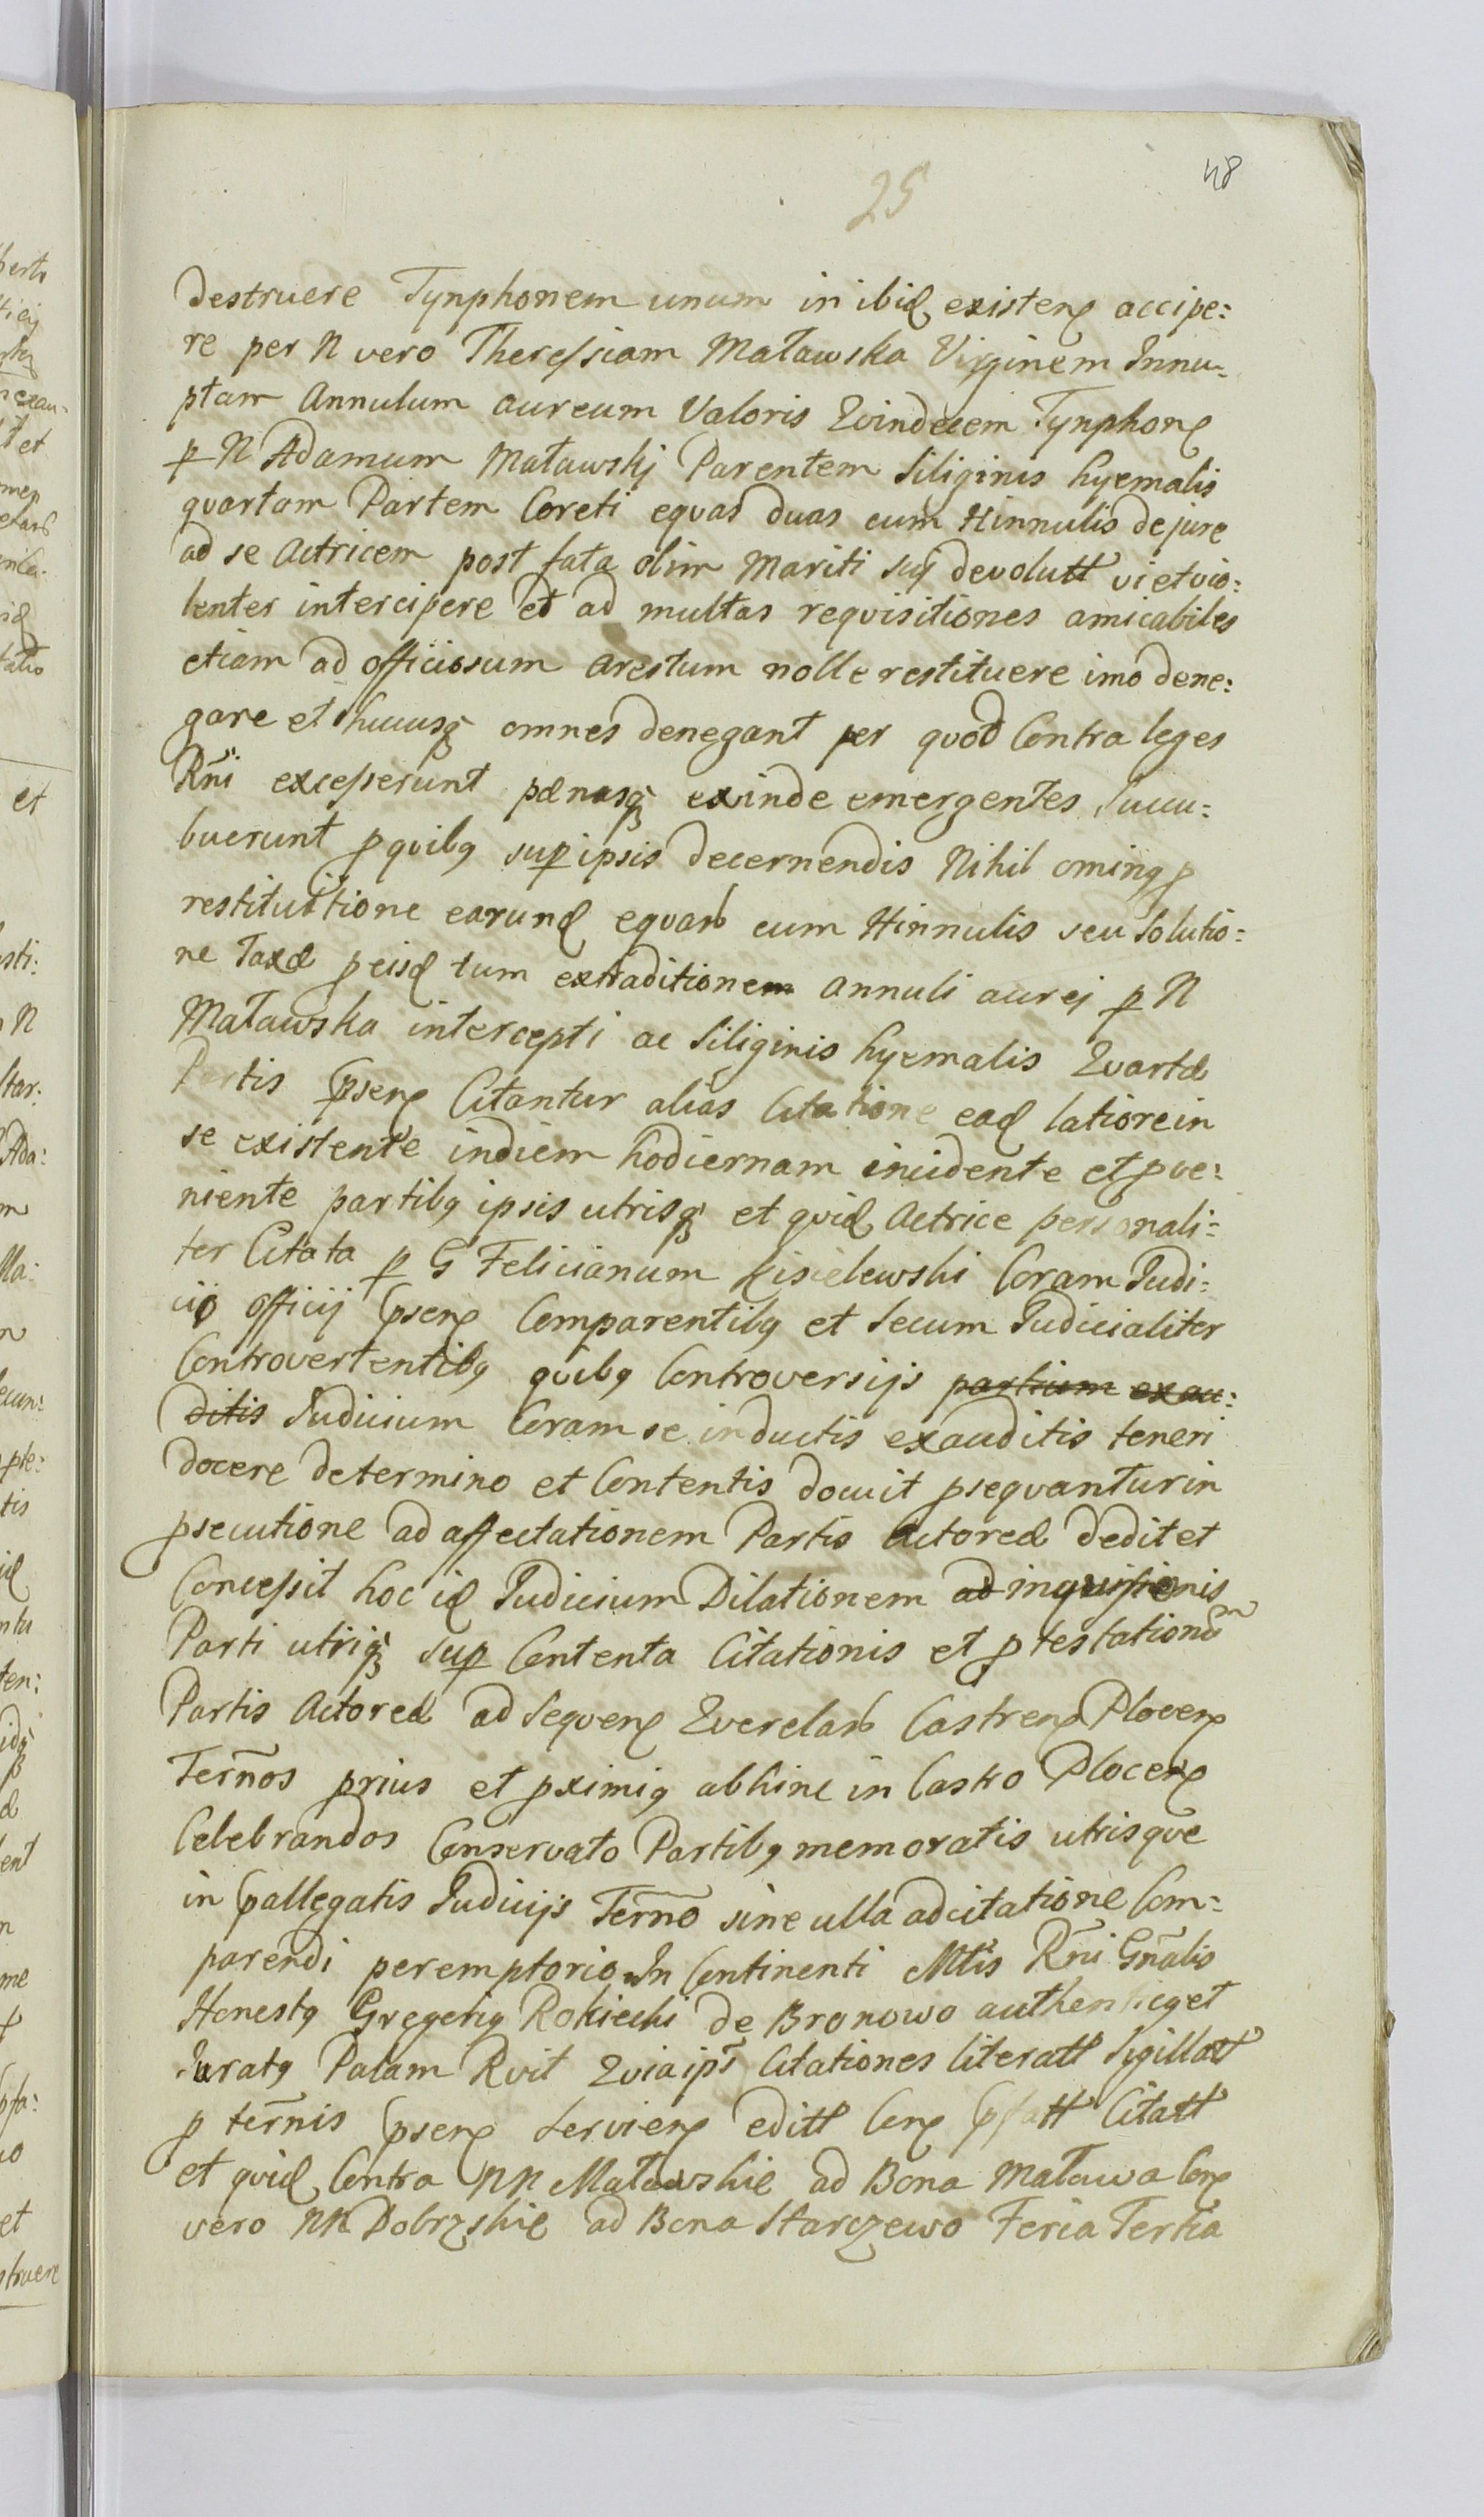 25
48
destruere Tynphonem unum in ibid existen accipe:
re per N vero Theressiam Maławska Virginem Innu-
ptam Annulum aureum Valoris Qvindecem Tynphon
p N Adamum Maławskj Parentem Siliginis hyemalis
qvartam Partem Coreti eqvas duas cum Hinnulis de jure
ad se Actricem post fata olim Mariti suj devolutt vi et vio:
lenter intercipere et ad multas reqvisitiones amicabiles
etiam ad officiosum Arestum nolle restituere imo dene:
gare et hucusq omnes denegant per qvod Contra leges
Rñi excesserunt pænasq exinde emergentes Succu:
buerunt p qvibq sup ipsis decernendis Nihil ominq p
restituitione earund eqvarb cum Hinnulis seu Solutio:
ne Taxæ p eisd tum extraditionem annuli aurej p N
Maławska intercepti ac Siliginis hyemalis Qvartæ
Partis psen Citantur alias Citatione ead latiore in
se existente in diem hodiernam incidente et pve:
niente partibq ipsis utrisq et qvid Actrice personali:
ter Citata p G Felicianum Kisielewski Coram Judi:
cio officij psen Comparentibq et Secum Judicialiter
Controvertentibq qvibq Controversijs partium exau:
ditis Judicium Coram se inductis exauditis teneri
docere determino et Contentis docuit pseqvantur in
psecutione ad affectationem Partis Actoreæ dedit et
Concessit hoc id Judicium Dilationem ad inqvisionis
Parti utriq sup Contenta Citationis et ptestationem
Partis Actoreæ ad Seqven Qverelarb Castren Plocen
Terños prius et pximiq abhinc in Castro Plocen
Celebrandos Conservato Partibq memoratis utrisqve
in pallegatis Judicijs Terño sine ulla adcitatione Com:
parendi peremptorio In Continenti Mtis Rñi Gñalis
Honestq Gregoriq Rokiecki de Bronowo authenticq et
Juratq Palam Rvit Qvia ips Citationes literatt Sigillatt
p terñis psen Servien editt Con pfatt Citatt
et qvid Contra NN Maławskie ad Bona Maława Con
vero NN Dobrzskie ad Bona Starczewo Feria Tertia